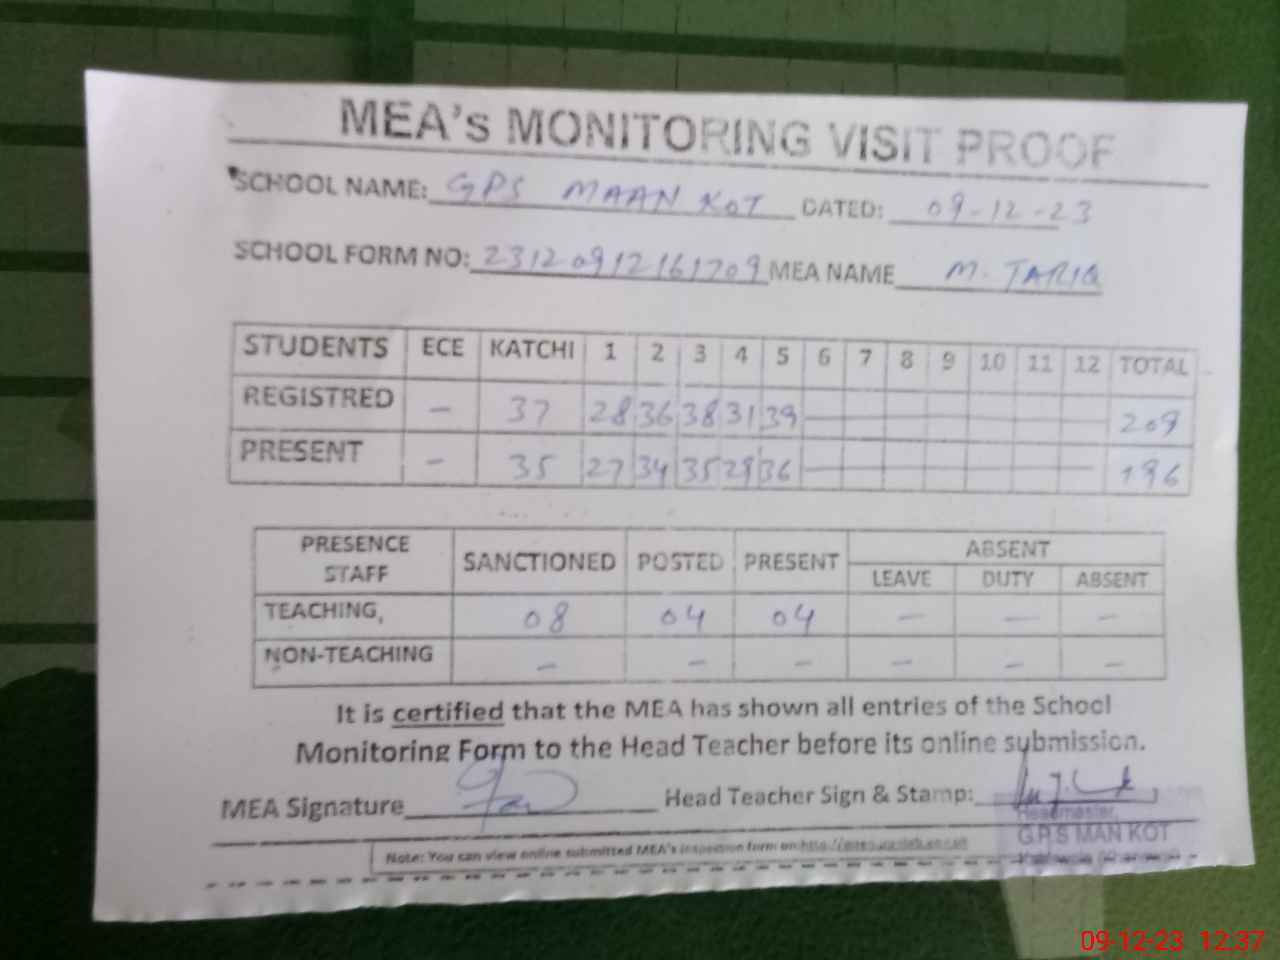 MEA's MONITORING VISIT PROOF
SCHOOL NAME: GPS MAAN KOT DATED: 09-12-23
SCHOOL FORM NO: 23120912161709 MEA NAME M. TARIQ
STUDENTS ECE KATCHI 1 2 3 4 5 6 7 8 9 10 11 12 TOTAL
REGISTRED - 37 28 36 38 31 39 209
PRESENT - 35 27 34 35 29 36 196
PRESENCE STAFF SANCTIONED POSTED PRESENT ABSENT
LEAVE DUTY ABSENT
TEACHING, 08 04 04 - - -
NON-TEACHING - - - - - -
It is certified that the MEA has shown all entries of the School
Monitoring Form to the Head Teacher before its online submission.
MEA Signature Head Teacher Sign & Stamp:
Headmaster,
G.P.S MAN KOT
Note: You can view online submitted MEA's inspection form on
09-12-23 12:37